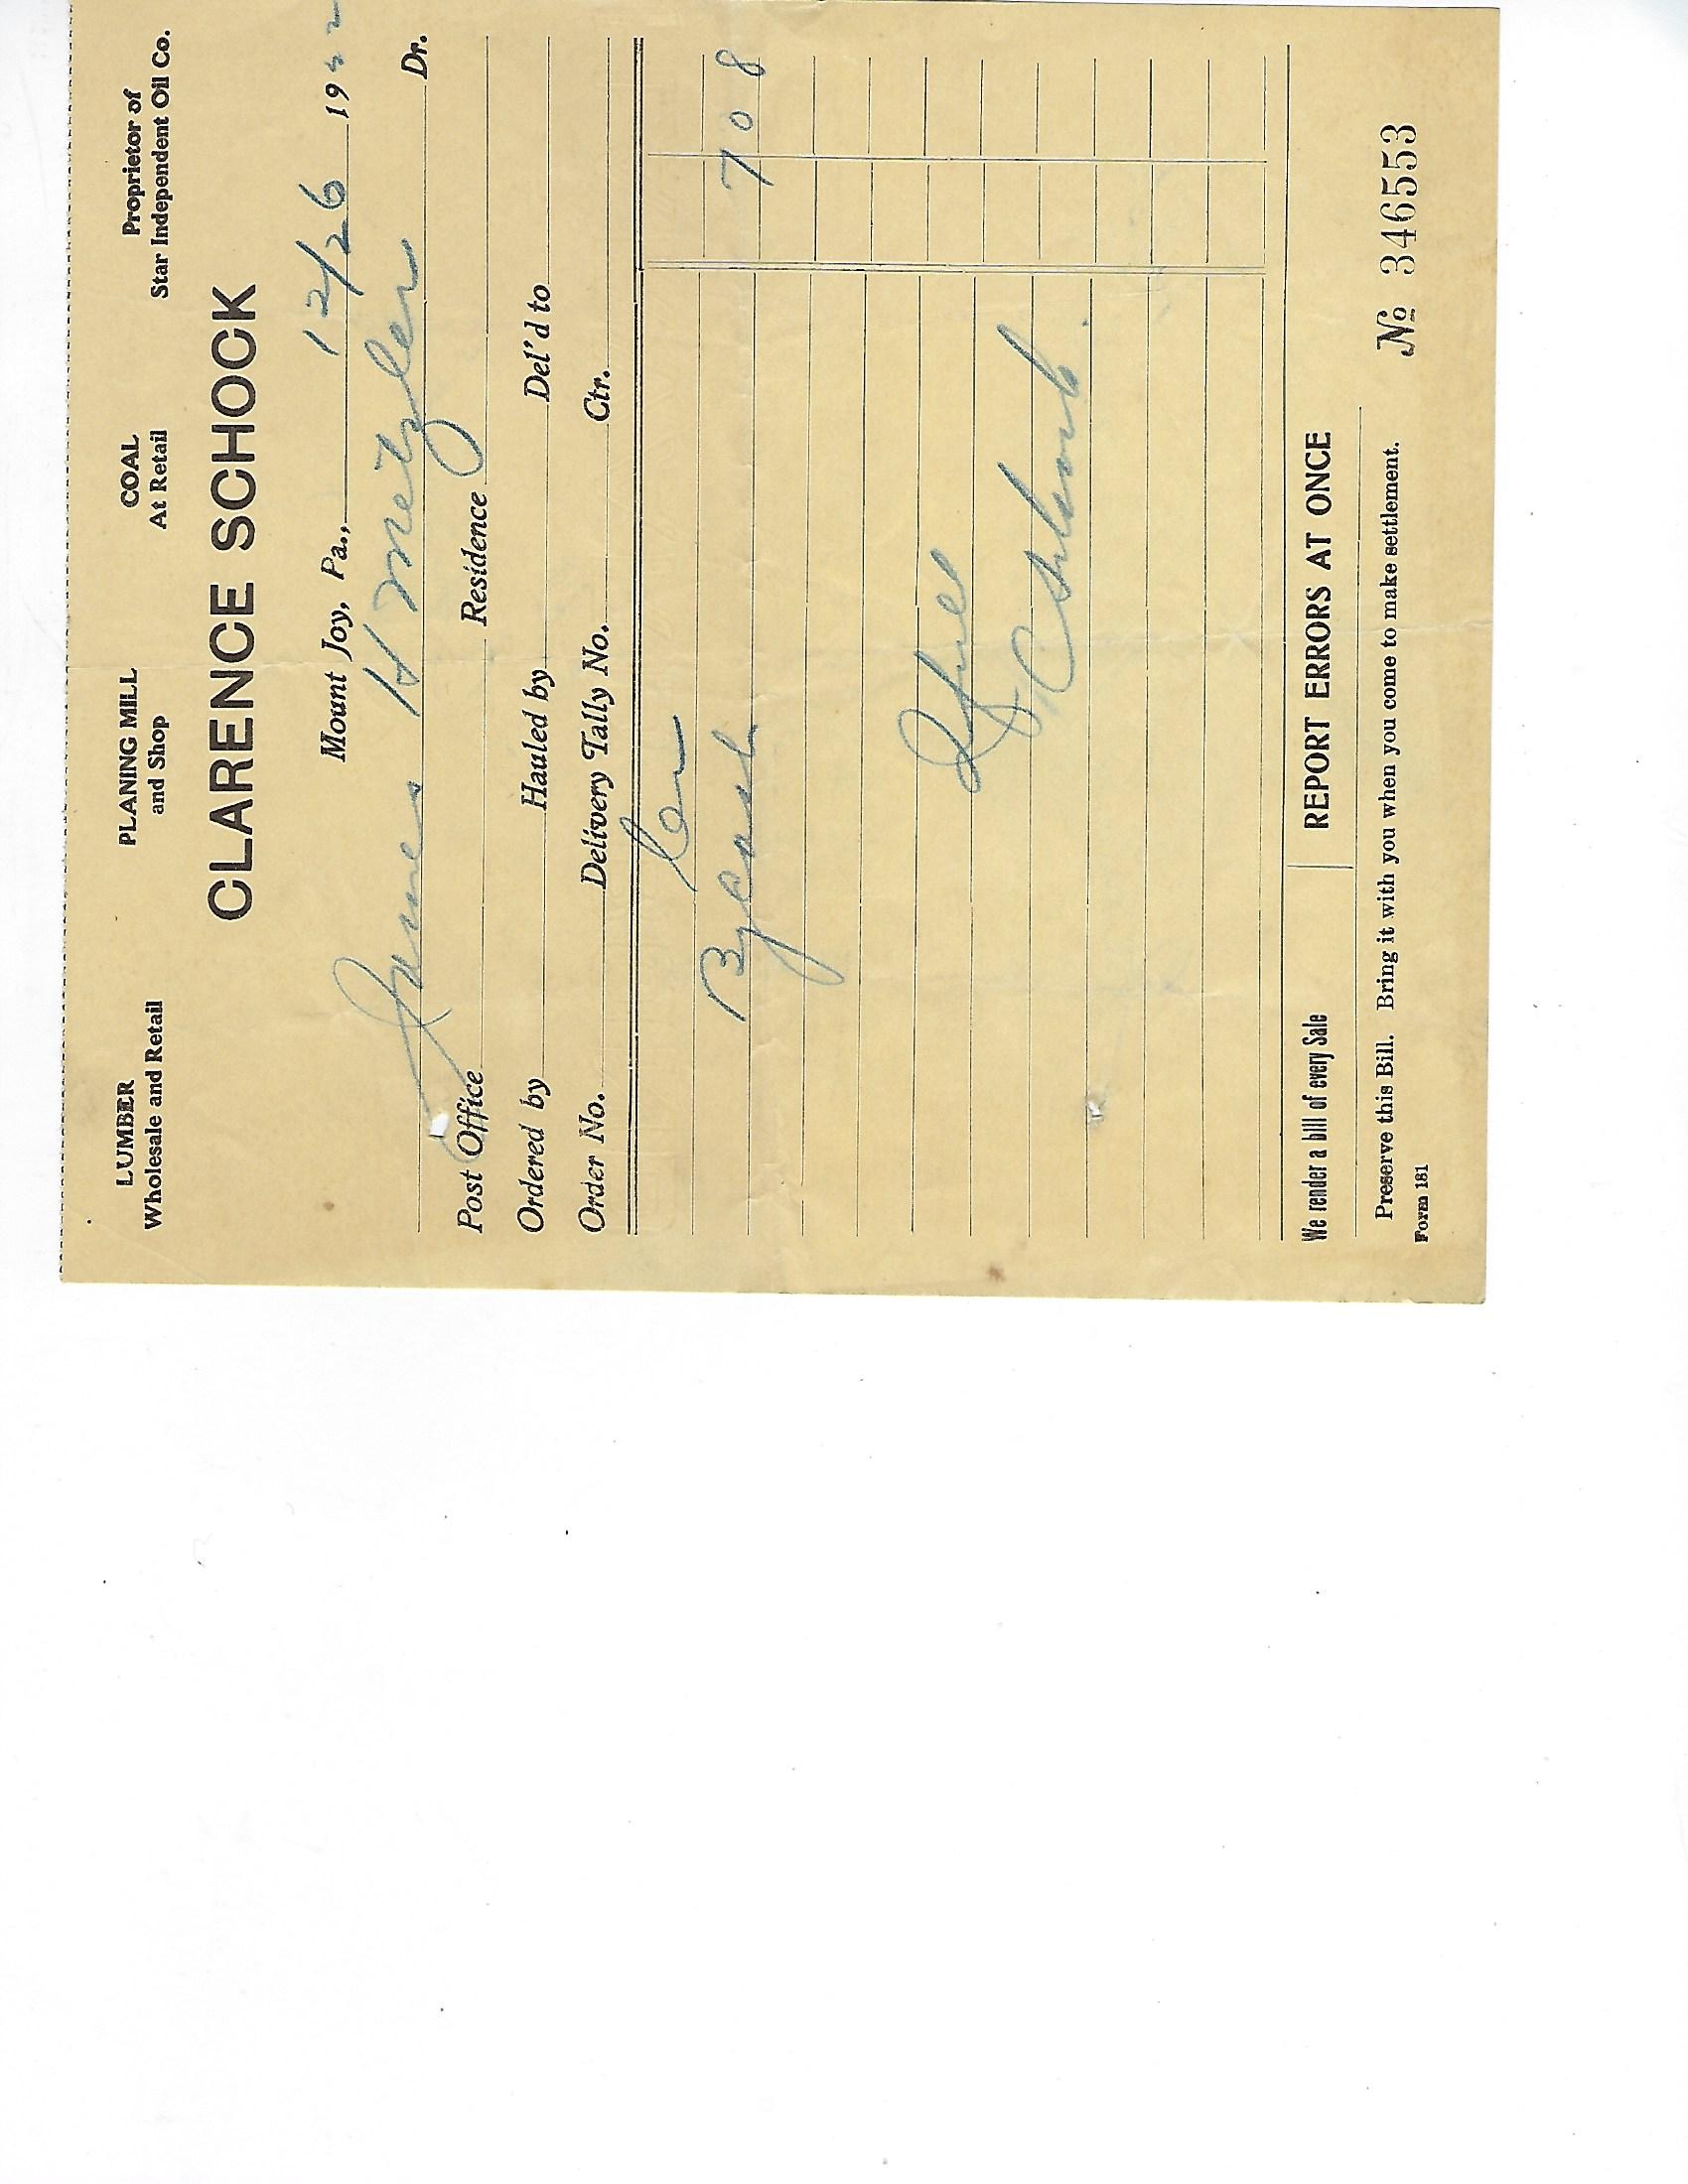 LUMBER PLANING MILL COAL Proprietor of
Wholesale and Retail and Shop At Retail Star Independent Oil Co.
CLARENCE SCHOCK
Mount Joy, Pa., 12/26 19
James H Metzler Dr.
Post Office Residence
Ordered by Hauled by Del'd to
Order No. Delivery Tally No. Ctr.
By Cash 7 08
We render a bill of every Sale REPORT ERRORS AT ONCE
Preserve this Bill. Bring it with you when you come to make settlement.
Form 181 № 346553